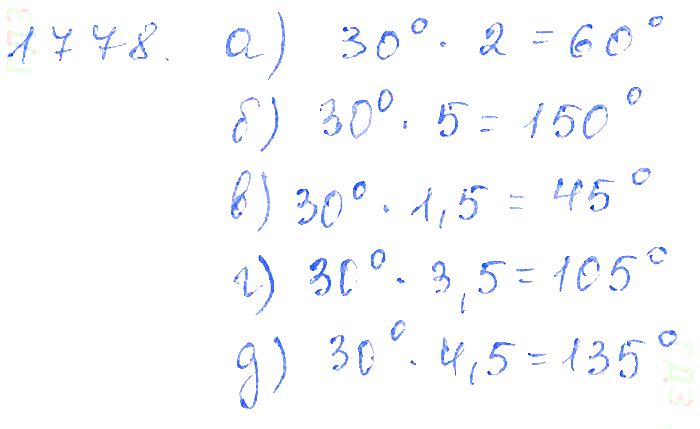 1778. а) 30° · 2 = 60°
б) 30° · 5 = 150°
в) 30° · 1,5 = 45°
г) 30° · 3,5 = 105°
д) 30° · 4,5 = 135°
гдз
гдз